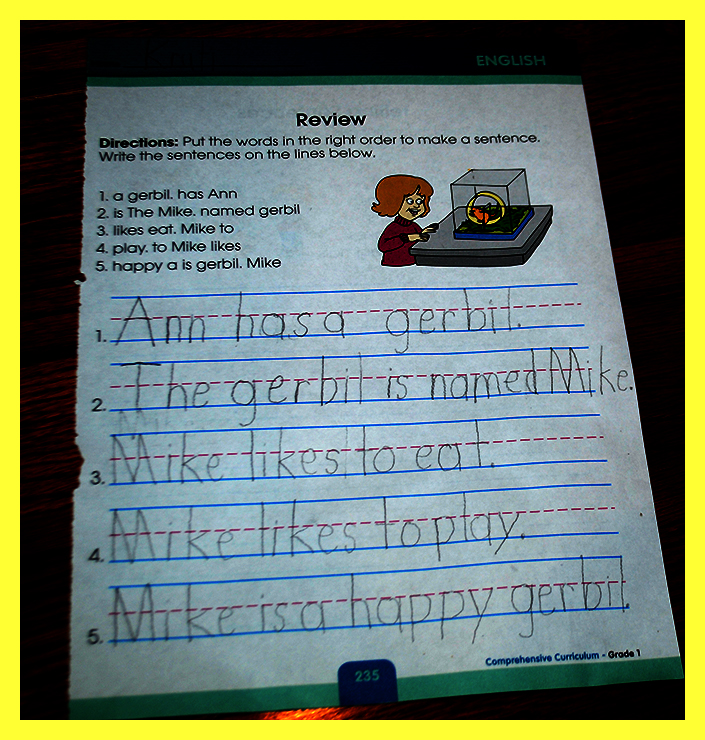 ENGLISH
Review
Directions: Put the words in the right order to make a sentence.
Write the sentences on the lines below.
1. a gerbil. has Ann
2. is The Mike. named gerbil
3. likes eat. Mike to
4. play. to Mike likes
5. happy a is gerbil. Mike
1. Ann has a gerbil.
2. The gerbil is named Mike.
3. Mike likes to eat.
4. Mike likes to play.
5. Mike is a happy gerbil.
Comprehensive Curriculum - Grade 1
235